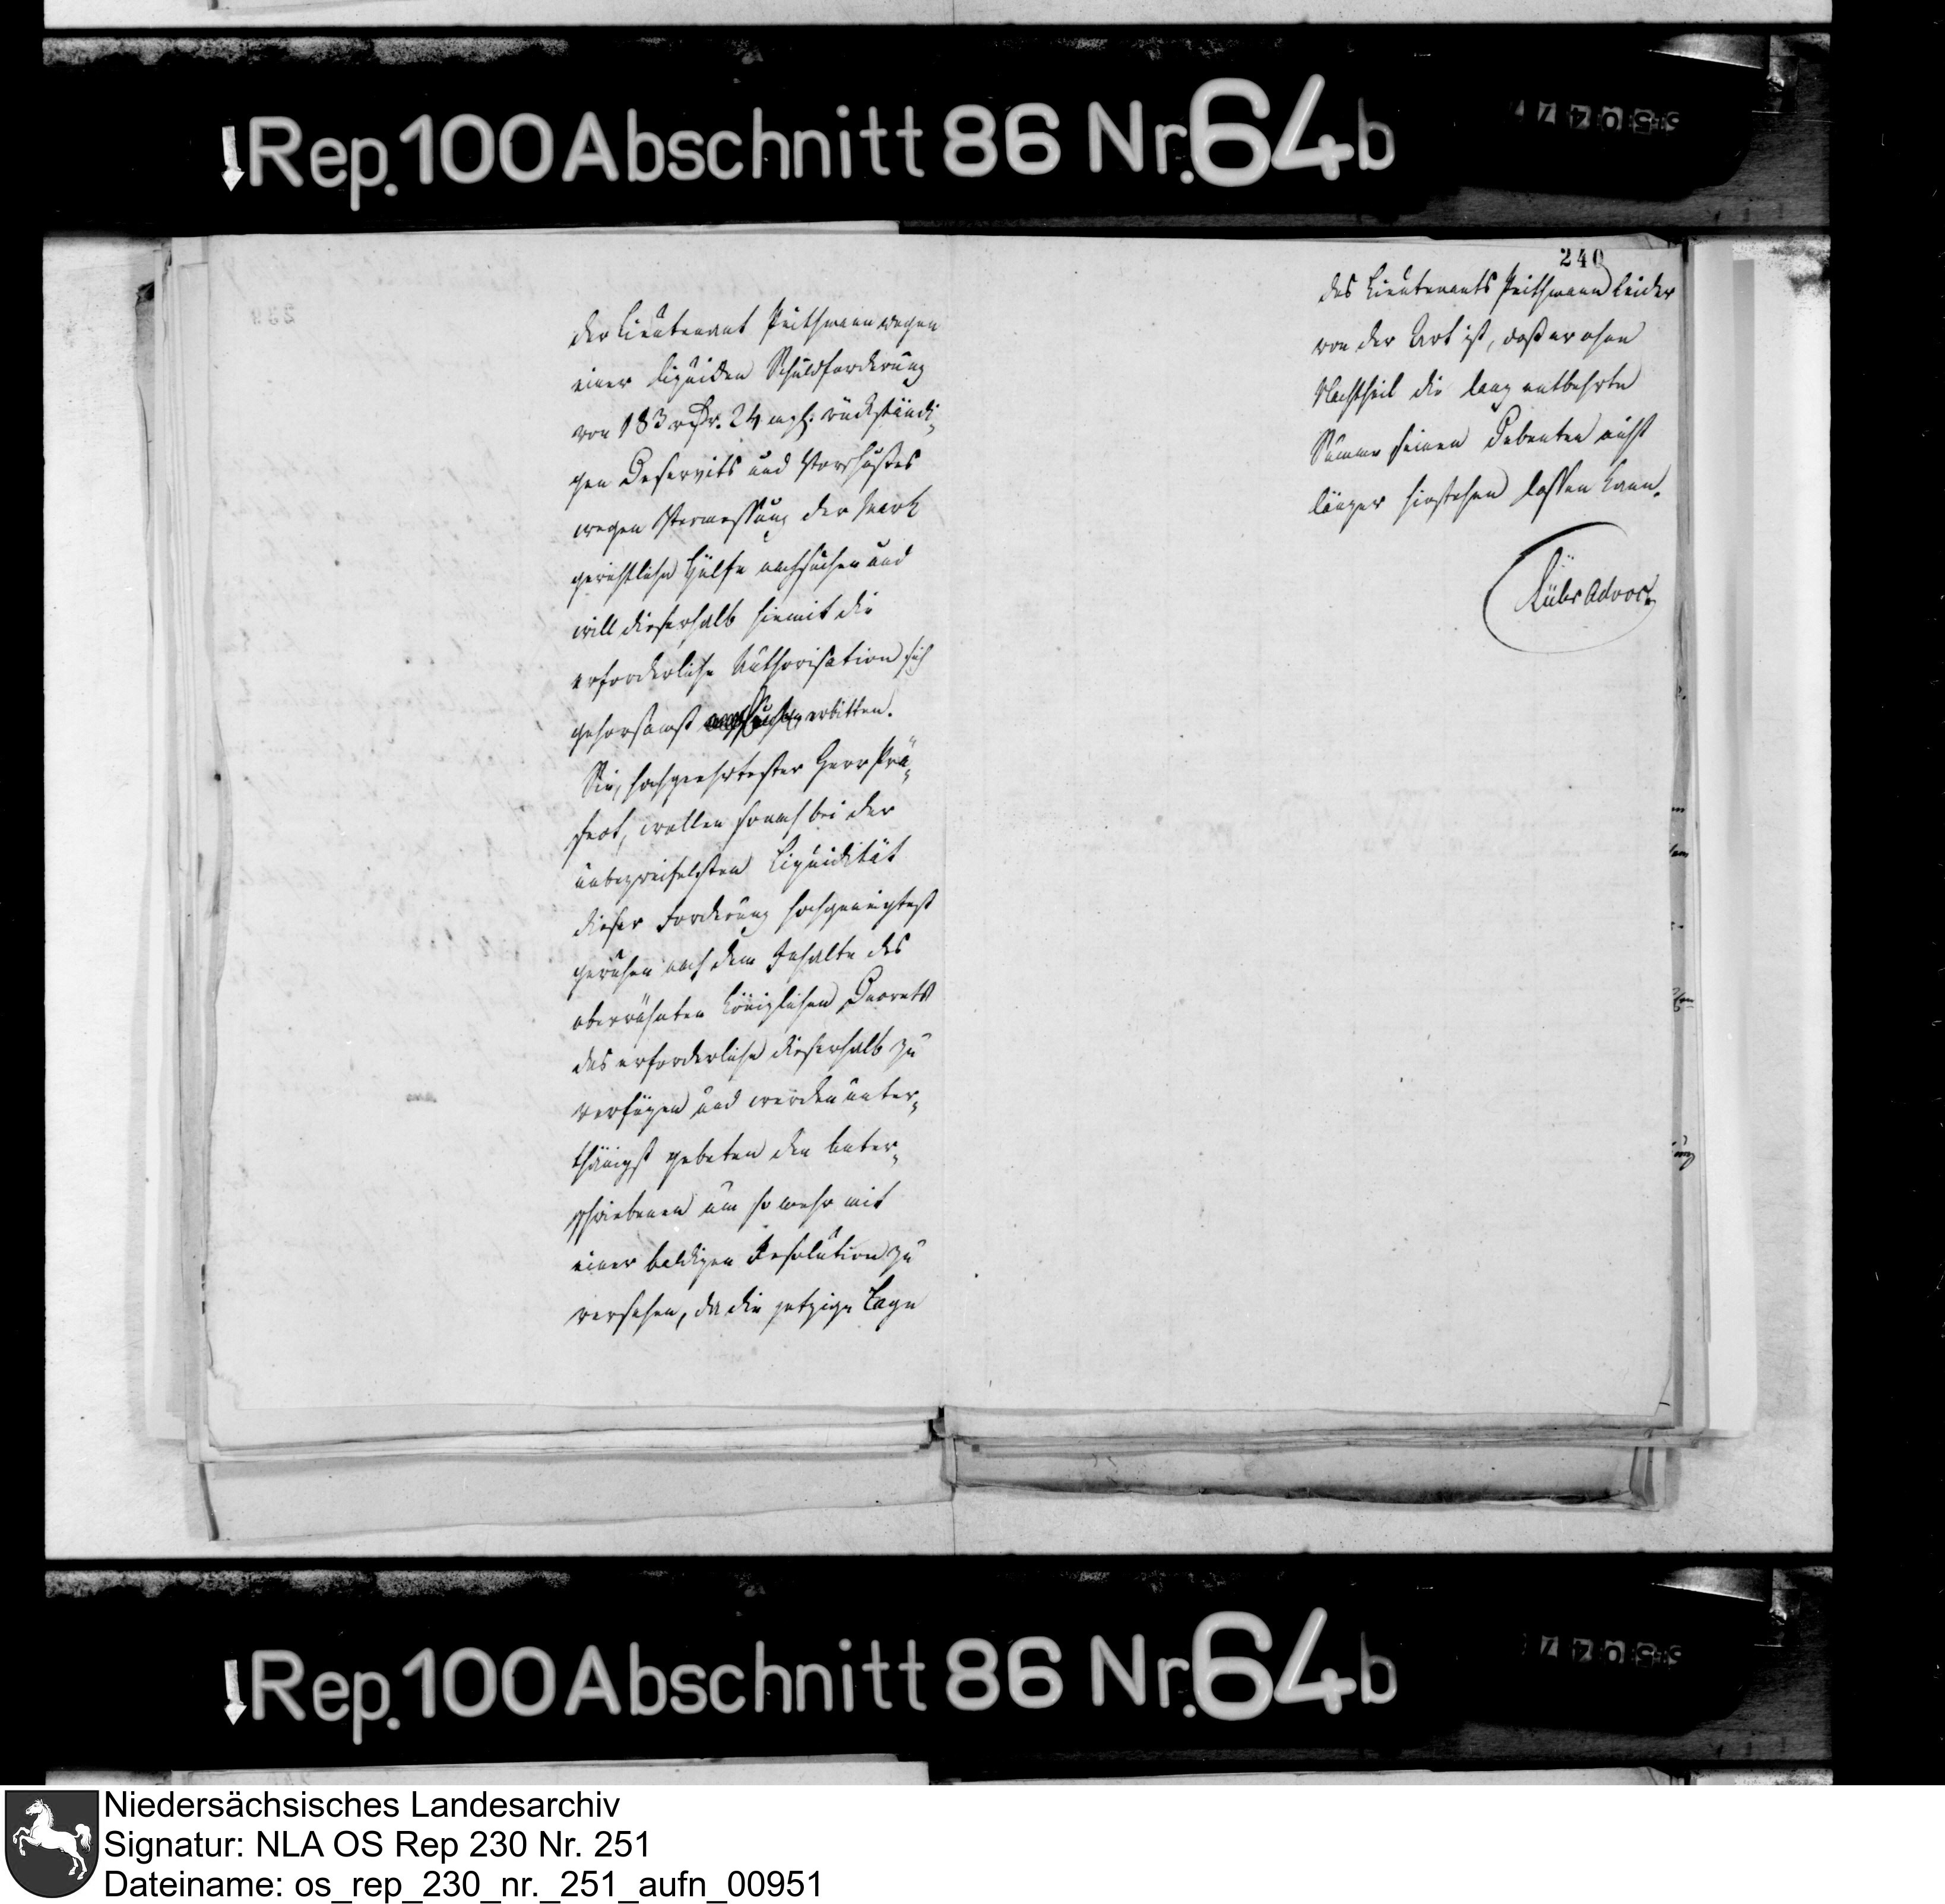 Rep. 100 Abschnitt 86 Nr. 64b
der Lieutenant Peithmann wegen
einer liquiden Schuldforderung
von 183 rthr. 24 mgl. rückständi-
gen Deservits und Vorschußes
wegen Vermessung der Mark
gerichtliche Hülfe nachsuchen und
will dieserhalb hiemit die
erforderliche Authorisation sich
gehorsamst erbitten.
Sie, hochgeehrtester Herr Prä-
fect, wollen sonach bei der
unbezweifelsten Liquidität
dieser Forderung hochgeneigtest
geruhen nach dem Inhalte des
oberwähnten Königlichen Decrets
das erforderliche dieserhalb zu
verfügen und werden unter-
thänigst gebeten den Unter-
schriebenen um so mehr mit
einer baldigen Resolution zu
versehen, da die jetzige Lage
240
des Lieutenants Peithmann leider
von der Art ist, daß er ohne
Nachtheil die lang entbehrte
Summe seinen Debenten nicht
länger hinstehen lassen kann.
Advoc.
Rep. 100 Abschnitt 86 Nr. 64b
Niedersächsisches Landesarchiv
Signatur: NLA OS Rep 230 Nr. 251
Dateiname: os_rep_230_nr._251_aufn_00951